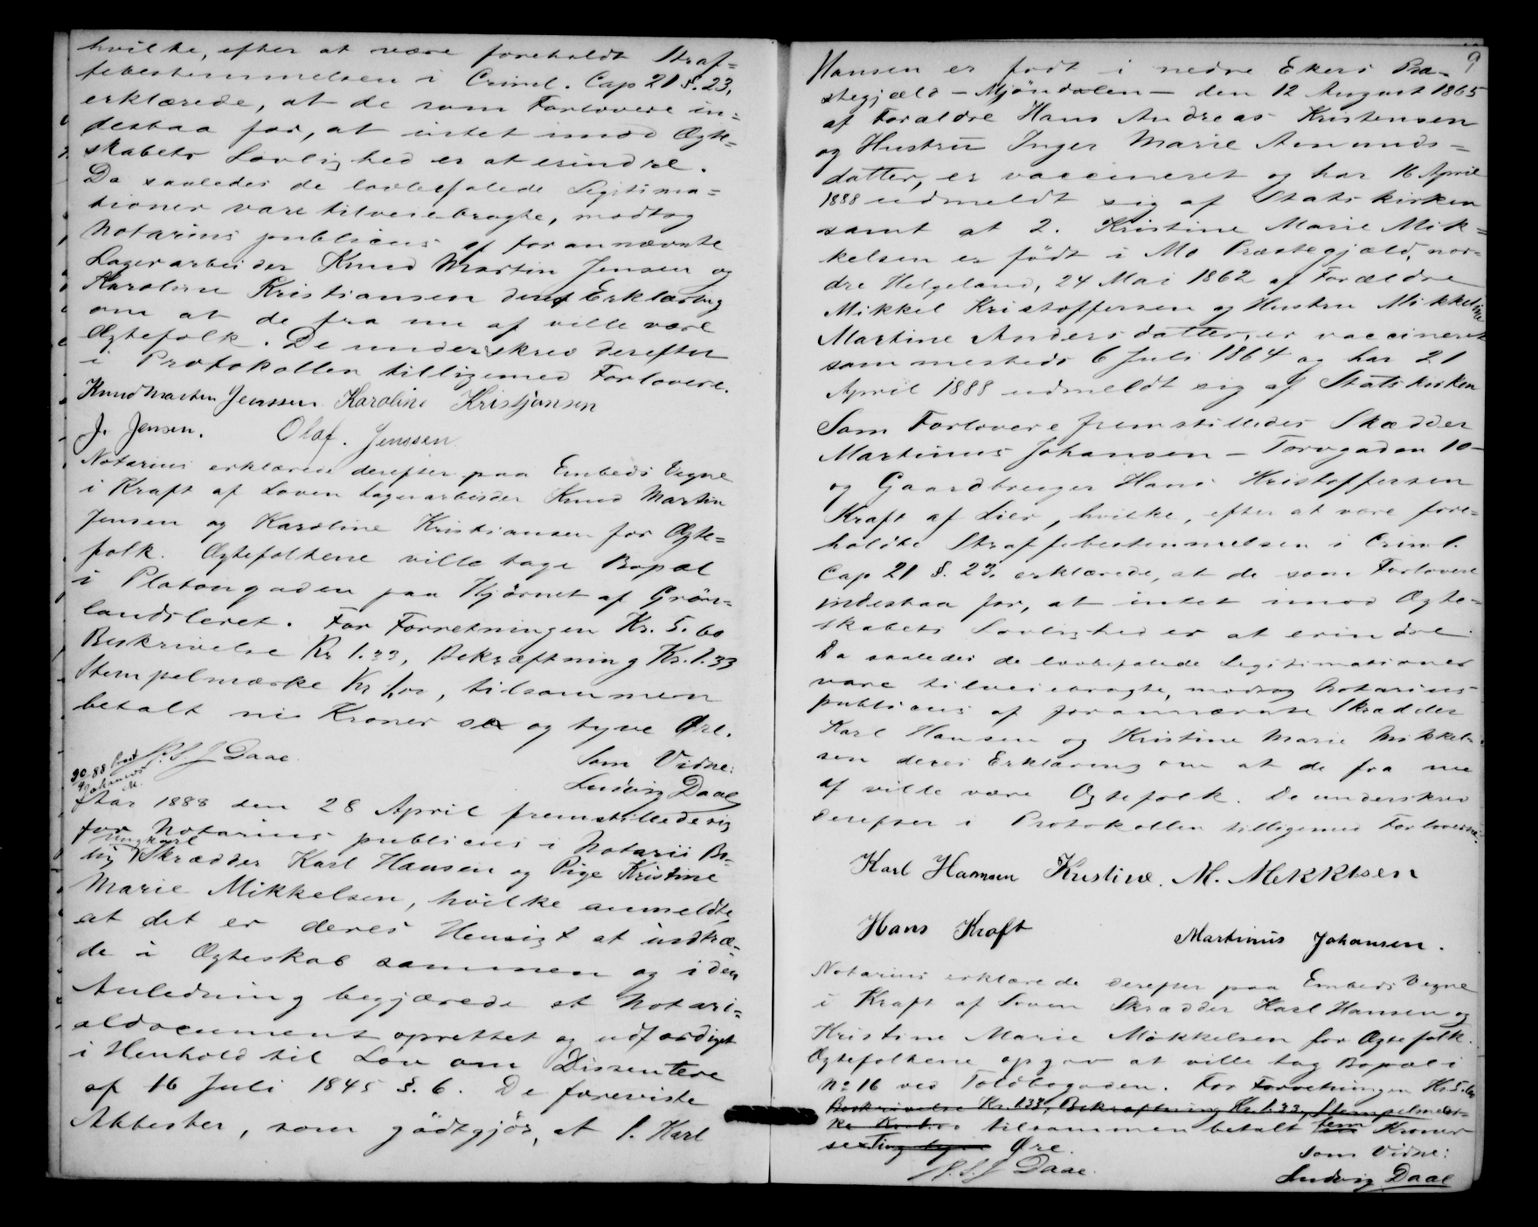 hvilke, efter at være foreholdt Straf=
febestemmelsen i Criml. Cap 21 §. 23,
erklærede, at de som Forlovere in=
destaa for, at intet imod Ægte=
skabets Lovlighed er at erindre.
Da saaledes de lovbefalede Legitima=
tioner vare tilveiebragte, modtog
Notarius publicus af forannævnte
Lagerarbeider Knud Martin Jensen og
Karoline Kristiansen deres Erklæring
om at de fra nu af ville være
Ægtefolk. De underskrev derefter
i Protokollen tilligemed Forlovere.
Knud Martin Jenssen Karoline Kristjansen
J. Jensen. Olaf. Jenssen.
Notarius erklærede derefter paa Embeds Vegne
i Kraft af Loven Lagerarbeider Knud Martin
Jensen og Karoline Kristiansen for Ægte=
folk. Ægtefolkene ville tage Bopæl
i Platougaden paa Hjørnet af Grøn=
landsleret. For Forretningen Kr. 5.60
Beskrivelse Kr 1.33, Bekræftning Kr. 1.33
Stempelmærke Kr 1,00, tilsammen
betalt ni Kroner sex og tyve Øre.
P. S. J Daae
Som Vidne:
Ludvig Daae
30-88
Aar 1888 den 28 April fremstillede sig
for Notarius publicus i Notarii Bo=
Ungkarl
lig Skrædder Karl Hansen og Pige Kristine
Marie Mikkelsen, hvilke anmeldte
at det er deres Hensigt at indtræ-
de i Ægteskab sammen og i den
Anledning begjærede et Notari=
aldocument oprettet og udfærdiget
i Henhold til Lov om Dissentere
af 16 Juli 1845 §. 6. De foreviste
Attester, som godtgjør, at 1. Karl
9
Hansen er født i nedre Ekers Præ-
stegjæld - Mjøndalen - den 12 August 1865
af Forældre Hans Andreas Kristensen
og Hustru Inger Marie Amunds=
datter, er vaccineret og har 16 April
1888 udmeldt sig af Statskirken
samt at 2. Kristine Marie Mik=
kelsen er født i Mo Præstegjæld, nor=
dre Helgeland, 24 Mai 1862 af Forældre
Mikkel Kristoffersen og Hustru Mikkeline
Martine Andersdatter, er vaccineret
sammesteds 6 Juli 1864 og har 21
April 1888 udmeldt sig af Statskirken
Som Forlovere fremstilledes Skrædder
Martinus Johansen - Torvgaden 10 -
og Gaardbruger Hans Kristoffersen
Kraft af Lier, hvilke, efter at være fore=
holdte Straffebestemmelsen i Criml.
Cap 21 §. 23. erklærede, at de som Forlovere
indestaa for, at intet imod Ægte=
skabets Lovlighed er at erindre.
Da saaledes de lovbefalede Legitimationer
vare tilveiebragte, modtog Notarius
publicus af forannævnte Skrædder
Karl Hansen og Kristine Marie Mikkel-
sen deres Erklæring om at de fra nu
af ville være Ægtefolk. De underskrev
derefter i Protokollen tilligemed Forloverne.
Karl Hansen Kristine. M. Mekklsen
Hans Kraft Martinus Johansen.
Notarius erklærede derefter paa Embeds Vegne
i Kraft af Loven Skrædder Karl Hansen og
Kristine Marie Mikkelsen for Ægtefolk.
Ægtefolkene opgav at ville tag Bopæl i
No 16 ved Toldbogaden. For Forretningen Kr 5.60
Beskrivelse Kr. 1.33, Bekræftning Kr. 1.33, Stempelmær-
ke Kr 1.00 tilsammen betalt fem Kroner
sexti og tyve Øre.
P. S. J Daae.
Som Vidne:
Ludvig Daae